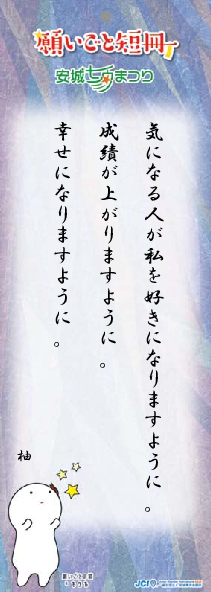 願いごと短冊
安城七夕まつり
気になる人が私を好きになりますように。
成績が上がりますように。
幸せになりますように。
柚
願いごと短冊
JCI